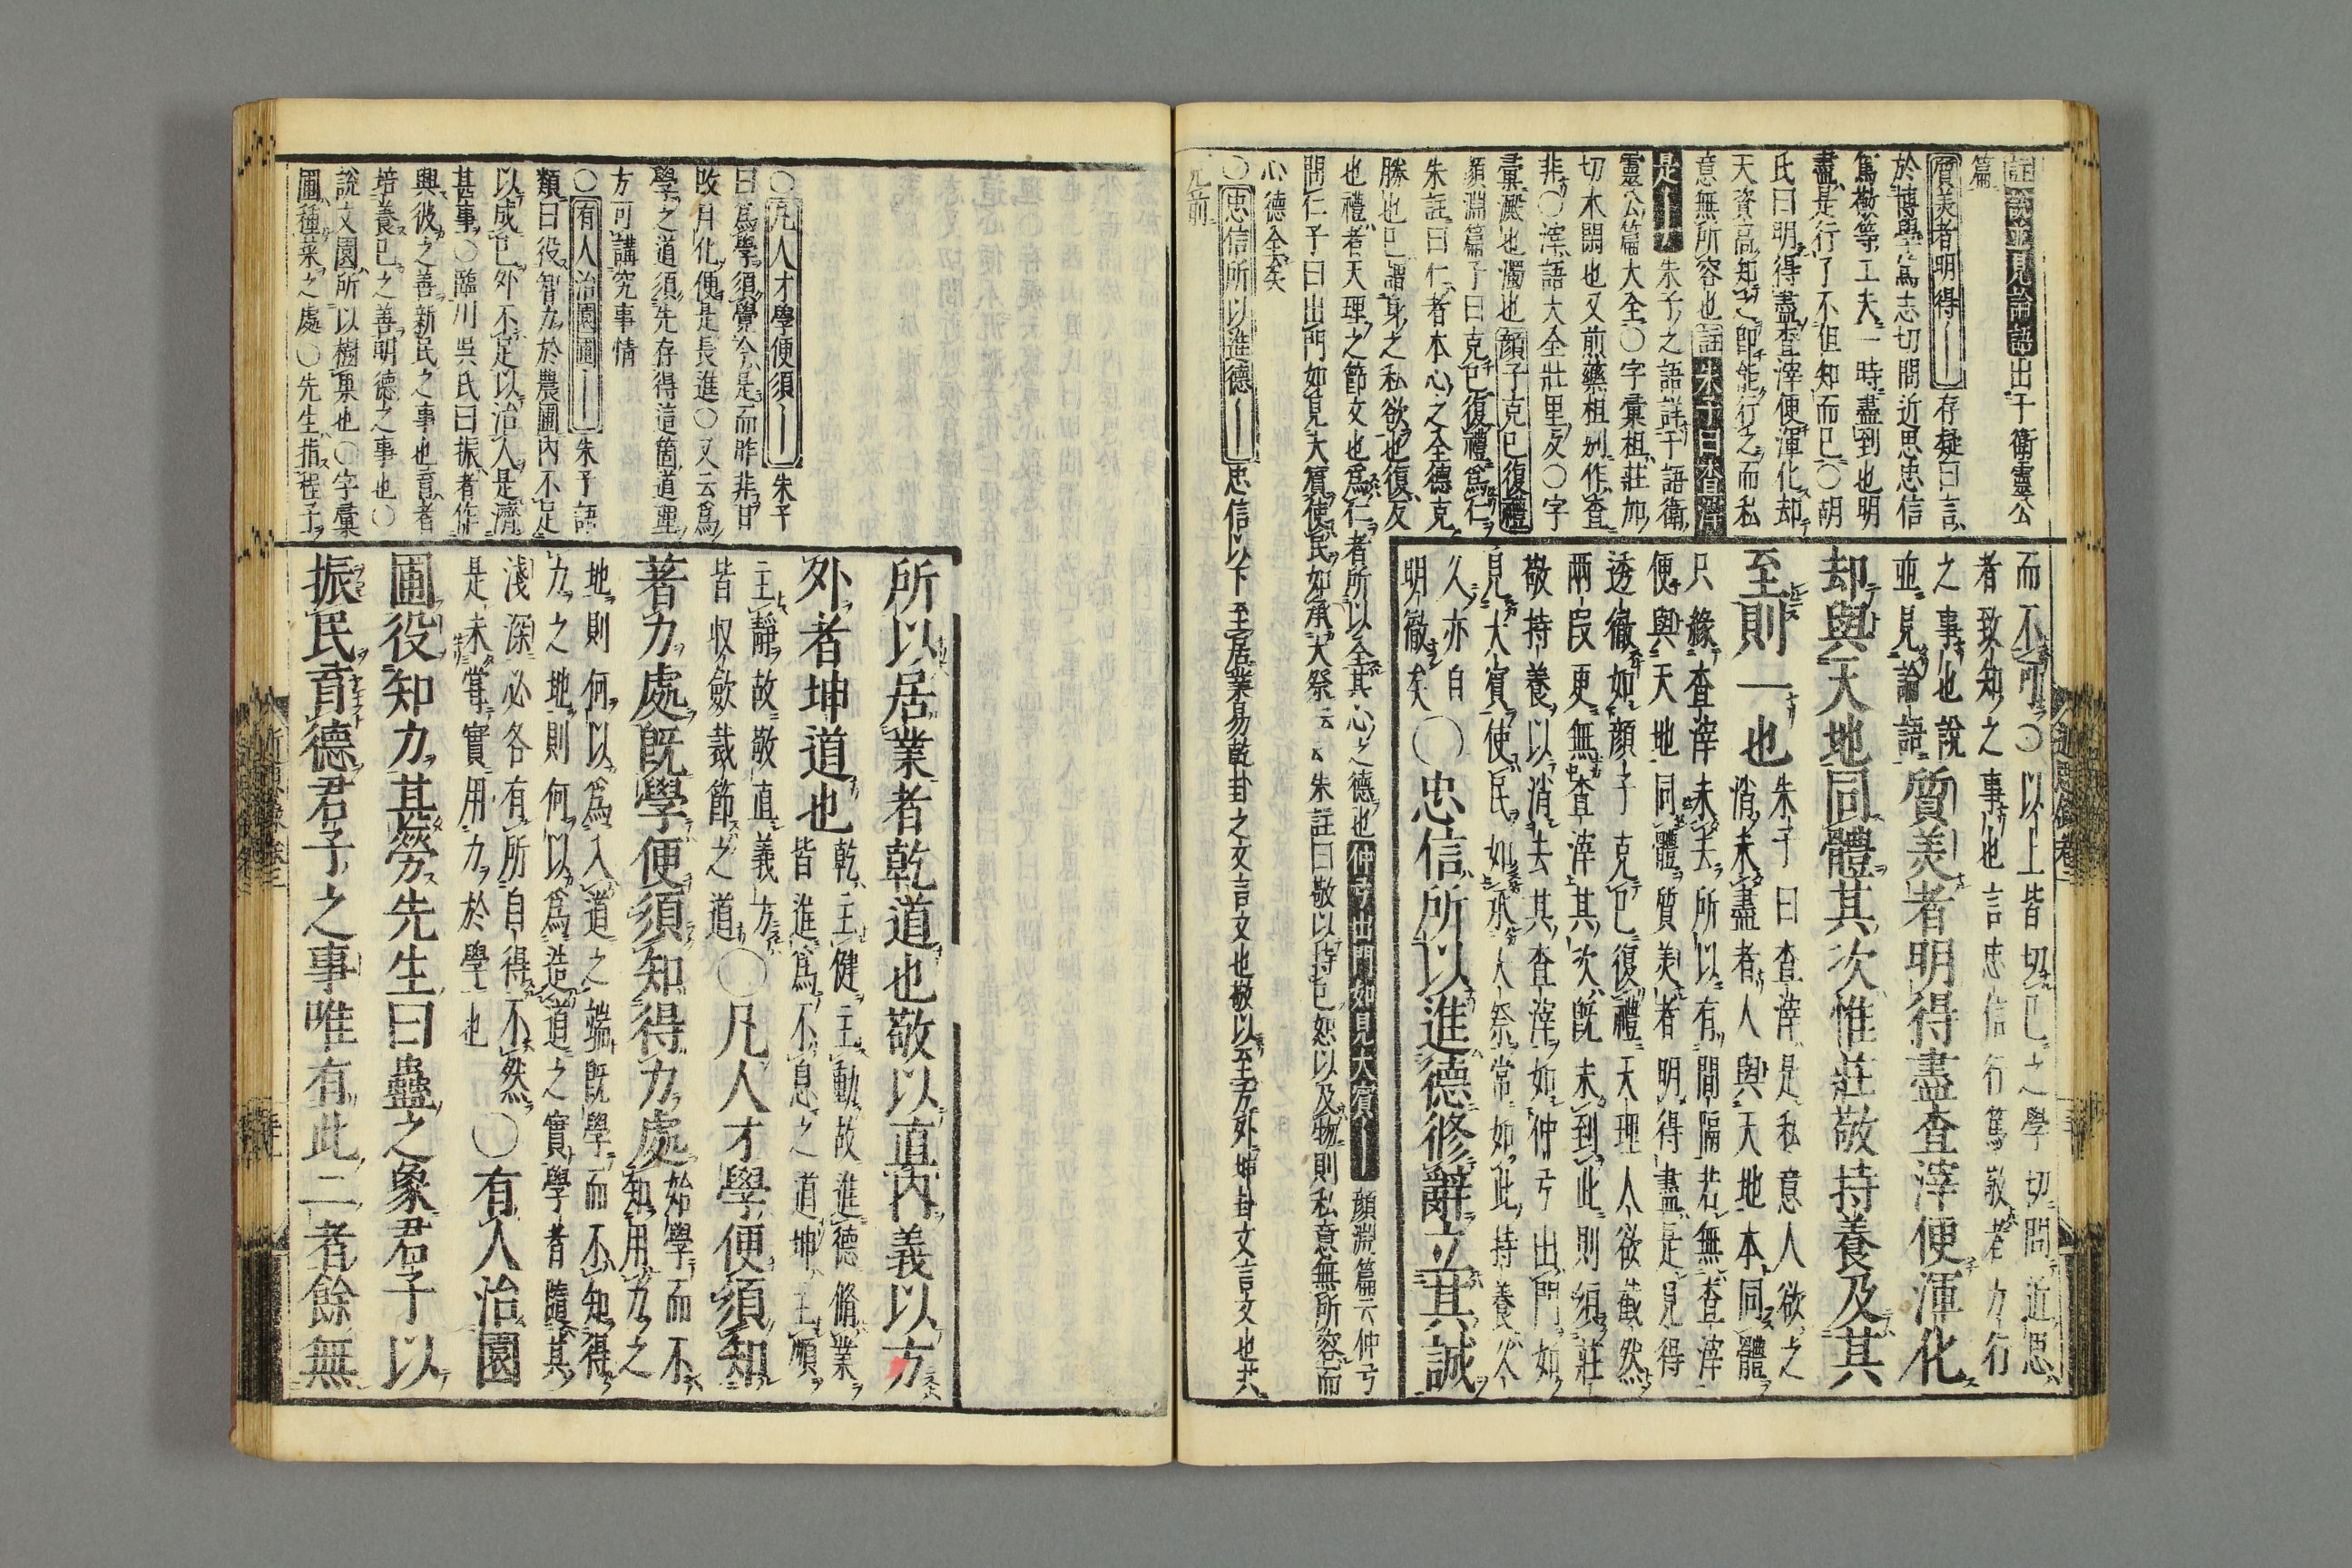 註說並見論語出于衛靈公
篇
質美者明得｜存疑曰言
於博學篤志切問近思忠信
篤敬等工夫一時盡到也明
盡是行了不但知而已○胡
氏曰明得盡查滓便渾化却
天資高知之卽能行之而私
意無所容也註朱子曰查滓
是｜朱子之語詳于語衛
靈公篇大全○字彙柤莊加
切木閑也又煎藥柤㓨作査
非○滓語大全壯里反○字
彙澱也濁也顏子克已復禮
顏淵篇子曰克已復禮爲仁
朱註曰仁者本心之全德克
勝也已謂身之私欲也復反
也禮者天理之節文也爲仁者所以全其心之德也仲弓出門如見大賓｜顏淵篇云仲弓
問仁子曰出門如見大賓使民如承大祭云云朱註曰敬以持已恕以及物則私意無所容而
心德全矣
○忠信所以進德｜忠信以下至居業易乾卦之文言文也敬以至方外坤卦文言文也共
見前
而不可○以上皆切已之學切問近思
者致知之事也言忠信行篤敬者力行
之事也說
並見論語質美者明得盡查滓便渾化
却與天地同體其次惟莊敬持養及其
至則一也朱子曰查滓是私意人欲之
消未盡者人與天地本同體
只緣査滓未去所以有間隔若無査滓
便與天地同體質美者明得盡是見得
透徹如顏子克已復禮天理人欲截然
兩段更無査滓其次旣未到此則須莊
敬持養以消去其査滓如仲弓出門如
見大賓使民如承大祭常如此持養久
久亦自
明徹矣○忠信所以進德修辭立其誠
所以居業者乾道也敬以直內義以方
外者坤道也乾主健主動故進德脩業
皆進爲不息之道坤主順
主靜故敬直義方
皆収歛裁節之道○凡人才學便須知
著力處旣學便須知得力處始學而不
知用力之
地則何以爲入道之端旣學而不知得
力之地則何以爲造道之實學者隨其
淺深必各有所自得不然
是未嘗實用力於學也○有人治園
圃役知力甚勞先生曰蠱之象君子以
振民育德君子之事唯有此二者餘無
○凡人才學便須｜朱子
曰爲學須覺今是而昨非日
改月化便是長進○又云爲
學之道須先存得這箇道理
方可講究事情
○有人治園圃｜朱子語
類曰役智力於農圃內不足
以成已外不足以治人是濟
甚事○臨川吳氏曰振者作
興彼之善新民之事也育者
培養已之善明德之事也○
說文園所以樹菓也○字彙
圃種菜之處○先生指程子
近思錄卷二